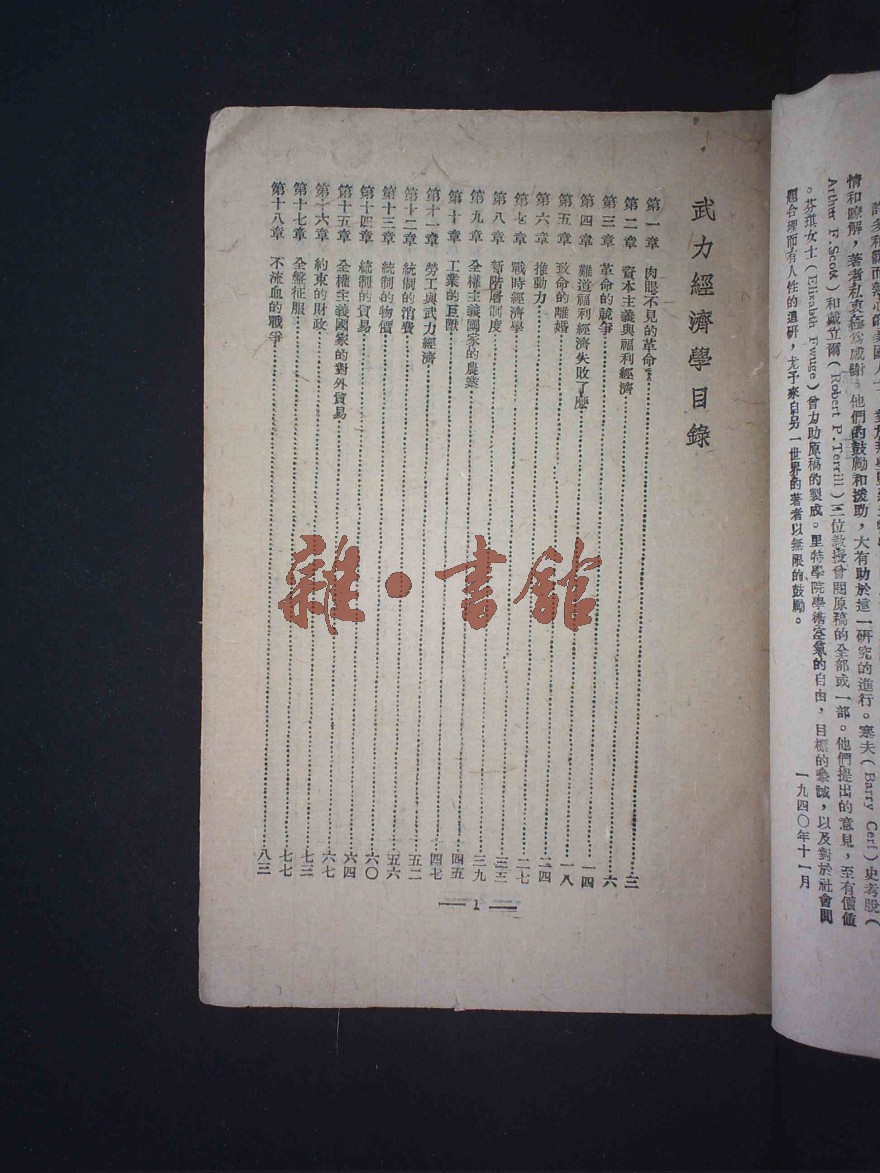 情和瞭解，著者私衷極為感謝。他們的鼓勵和援助，大有助於這一研究的進行。塞夫（Barry Cerf）史考脫（
Arthur F. Scott）和戴立爾（Robert P. Terrill）三位教授曾閱原稿的全部或一部。他們提出的意見，至有價值
。芬琪女士（Elizabth Fwuge）曾力助原稿的製成。里特學院學術空氣的自由，目標的懇誠，以及對於社會問
題合理而有人性的鑽研，尤予來自另一世界的著者以無限的鼓勵。
一九四〇年十一月
武力經濟學目錄
第一章 肉眼不見的革命 三
第二章 資本主義與福利經濟 六
第三章 革命的競爭 一四
第四章 難道福利經濟失敗了麼 一八
第五章 致命的離婚 二四
第六章 推動力 二七
第七章 戰時經濟學 三三
第八章 新階層制度 三九
第九章 全權主義國家的農業 四五
第十章 工業的巨獸 四七
第十一章 勞工與武力經濟 五二
第十二章 統制的消費 五六
第十三章 統制的物價 六〇
第十四章 統制的貿易 六四
第十五章 全權主義國家的對外貿易 六七
第十六章 約束的財政 七三
第十七章 全盤征服 七七
第十八章 不流血的戰爭 八三
1
雜·書館